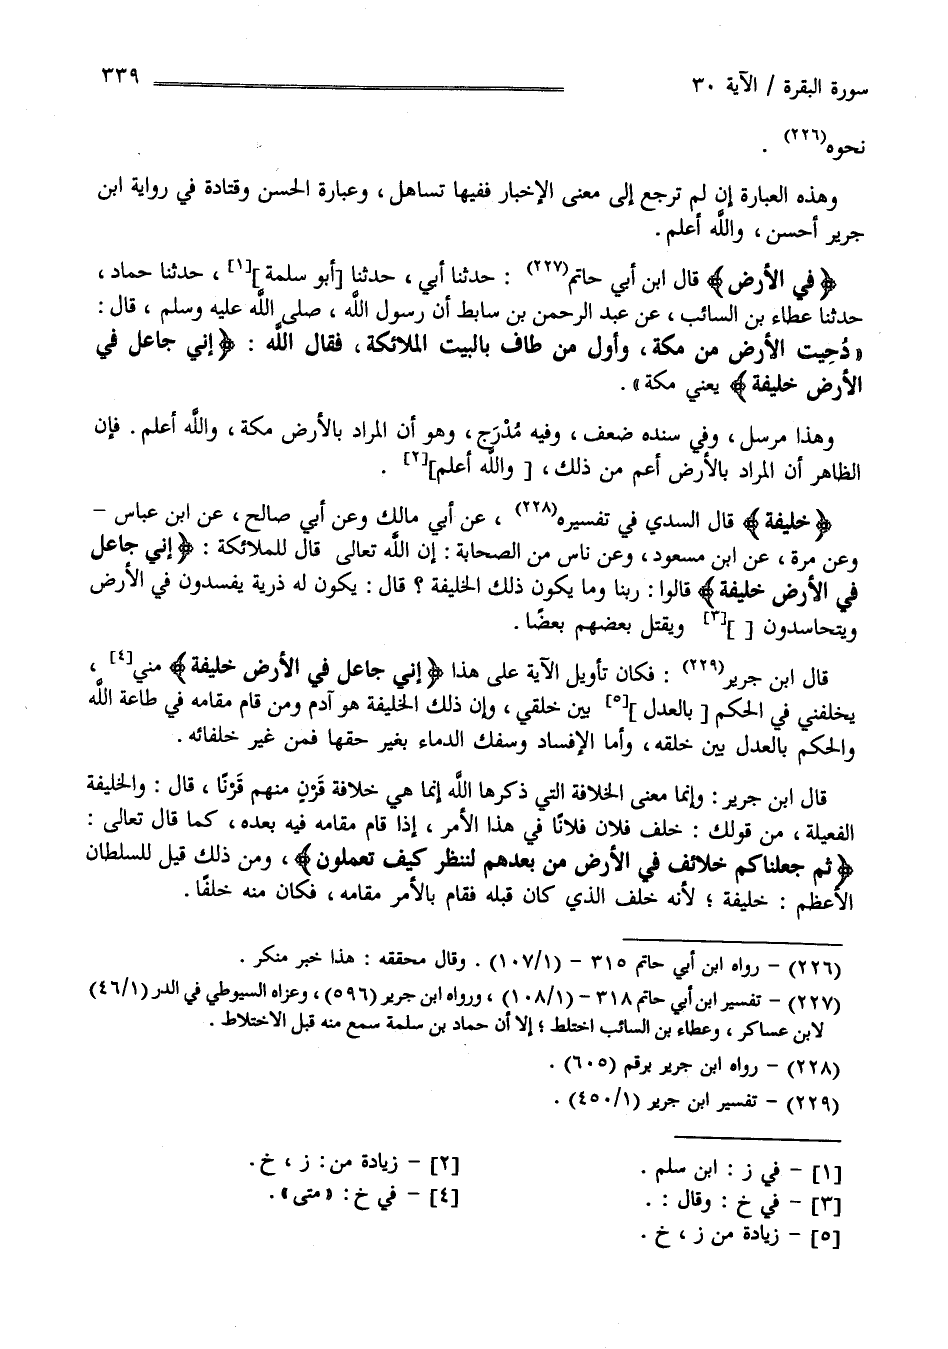 سورة البقرة / الآية ٣٠ ٣٣٩
نحوه(٢٢٦) .
وهذه العبارة إن لم ترجع إلى معنى الإخبار ففيها تساهل ، وعبارة الحسن وقتادة في رواية ابن
جرير أحسن ، واللَّه أعلم .
﴿ في الأرض ﴾ قال ابن أبي حاتم(٢٢٧) : حدثنا أبي ، حدثنا [أبو سلمة ][١] ، حدثنا حماد ،
حدثنا عطاء بن السائب ، عن عبد الرحمن بن سابط أن رسول اللَّه ، صلى اللَّه عليه وسلم ، قال :
« دُحِيت الأرض من مكة ، وأول من طاف بالبيت الملائكة ، فقال اللَّه : ﴿ إني جاعل في
الأرض خليفة ﴾ يعني مكة » .
وهذا مرسل ، وفي سنده ضعف ، وفيه مُدْرَج ، وهو أن المراد بالأرض مكة ، واللَّه أعلم . فإن
الظاهر أن المراد بالأرض أعم من ذلك ، [ واللَّه أعلم][٢] .
﴿ خليفة ﴾ قال السدي في تفسيره(٢٢٨) ، عن أبي مالك وعن أبي صالح ، عن ابن عباس –
وعن مرة ، عن ابن مسعود ، وعن ناس من الصحابة : إن اللَّه تعالى قال للملائكة : ﴿ إني جاعل
في الأرض خليفة ﴾ قالوا : ربنا وما يكون ذلك الخليفة ؟ قال : يكون له ذرية يفسدون في الأرض
ويتحاسدون [ ][٣] ويقتل بعضهم بعضًا .
قال ابن جرير(٢٢٩) : فكان تأويل الآية على هذا ﴿ إني جاعل في الأرض خليفة ﴾ مني[٤] ،
يخلفني في الحكم [ بالعدل ][٥] بين خلقي ، وإن ذلك الخليفة هو آدم ومن قام مقامه في طاعة اللَّه
والحكم بالعدل بين خلقه ، وأما الإفساد وسفك الدماء بغير حقها فمن غير خلفائه .
قال ابن جرير : وإنما معنى الخلافة التي ذكرها اللَّه إنما هي خلافة قَرْنٍ منهم قَرْنًا ، قال : والخليفة
الفعيلة ، من قولك : خلف فلان فلانًا في هذا الأمر ، إذا قام مقامه فيه بعده ، كما قال تعالى :
﴿ ثم جعلناكم خلائف في الأرض من بعدهم لننظر كيف تعملون ﴾ ، ومن ذلك قيل للسلطان
الأعظم : خليفة ؛ لأنه خلف الذي كان قبله فقام بالأمر مقامه ، فكان منه خلفًا .
(٢٢٦) – رواه ابن أبي حاتم ٣١٥ – (١٠٧/١) . وقال محققه : هذا خبر منكر .
(٢٢٧) – تفسير ابن أبي حاتم ٣١٨ – (١٠٨/١) ، ورواه ابن جرير (٥٩٦) ، وعزاه السيوطي في الدر (٤٦/١)
لابن عساكر ، وعطاء بن السائب اختلط ؛ إلا أن حماد بن سلمة سمع منه قبل الاختلاط .
(٢٢٨) – رواه ابن جرير برقم (٦٠٥) .
(٢٢٩) – تفسير ابن جرير (٤٥٠/١) .
[١] – في ز : ابن سلم .
[٢] – زيادة من : ز ، خ .
[٣] – في خ : وقال : .
[٤] – في خ : « متى » .
[٥] – زيادة من ز ، خ .